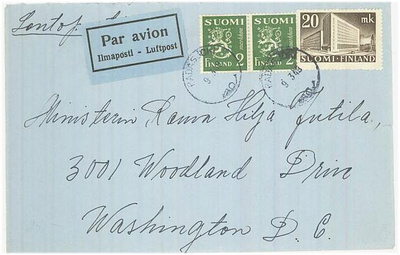 Par avion
Ilmaposti - Luftpost
SUOMI
FINLAND
2
SUOMI
FINLAND
2
20 mk
SUOMI-FINLAND
Ministerin Rauva Hilja Jutila,
3001 Woodland Driv
Washington D. C.